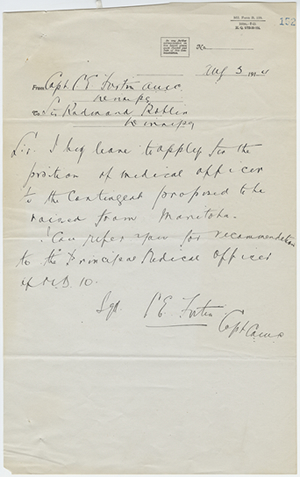 152
No.
Aug 3 1914
From Capt C E Fortin
Winnipeg
To Sir Rodmond Roblin
Winnipeg
Sir. I beg leave to apply for the
position of medical officer
to the Contingent proposed to be
raised from Manitoba.
I can refer you for recommendation
to the Principal Medical Officer
of M.D. 10.
Sgd. C E Fortin
Capt